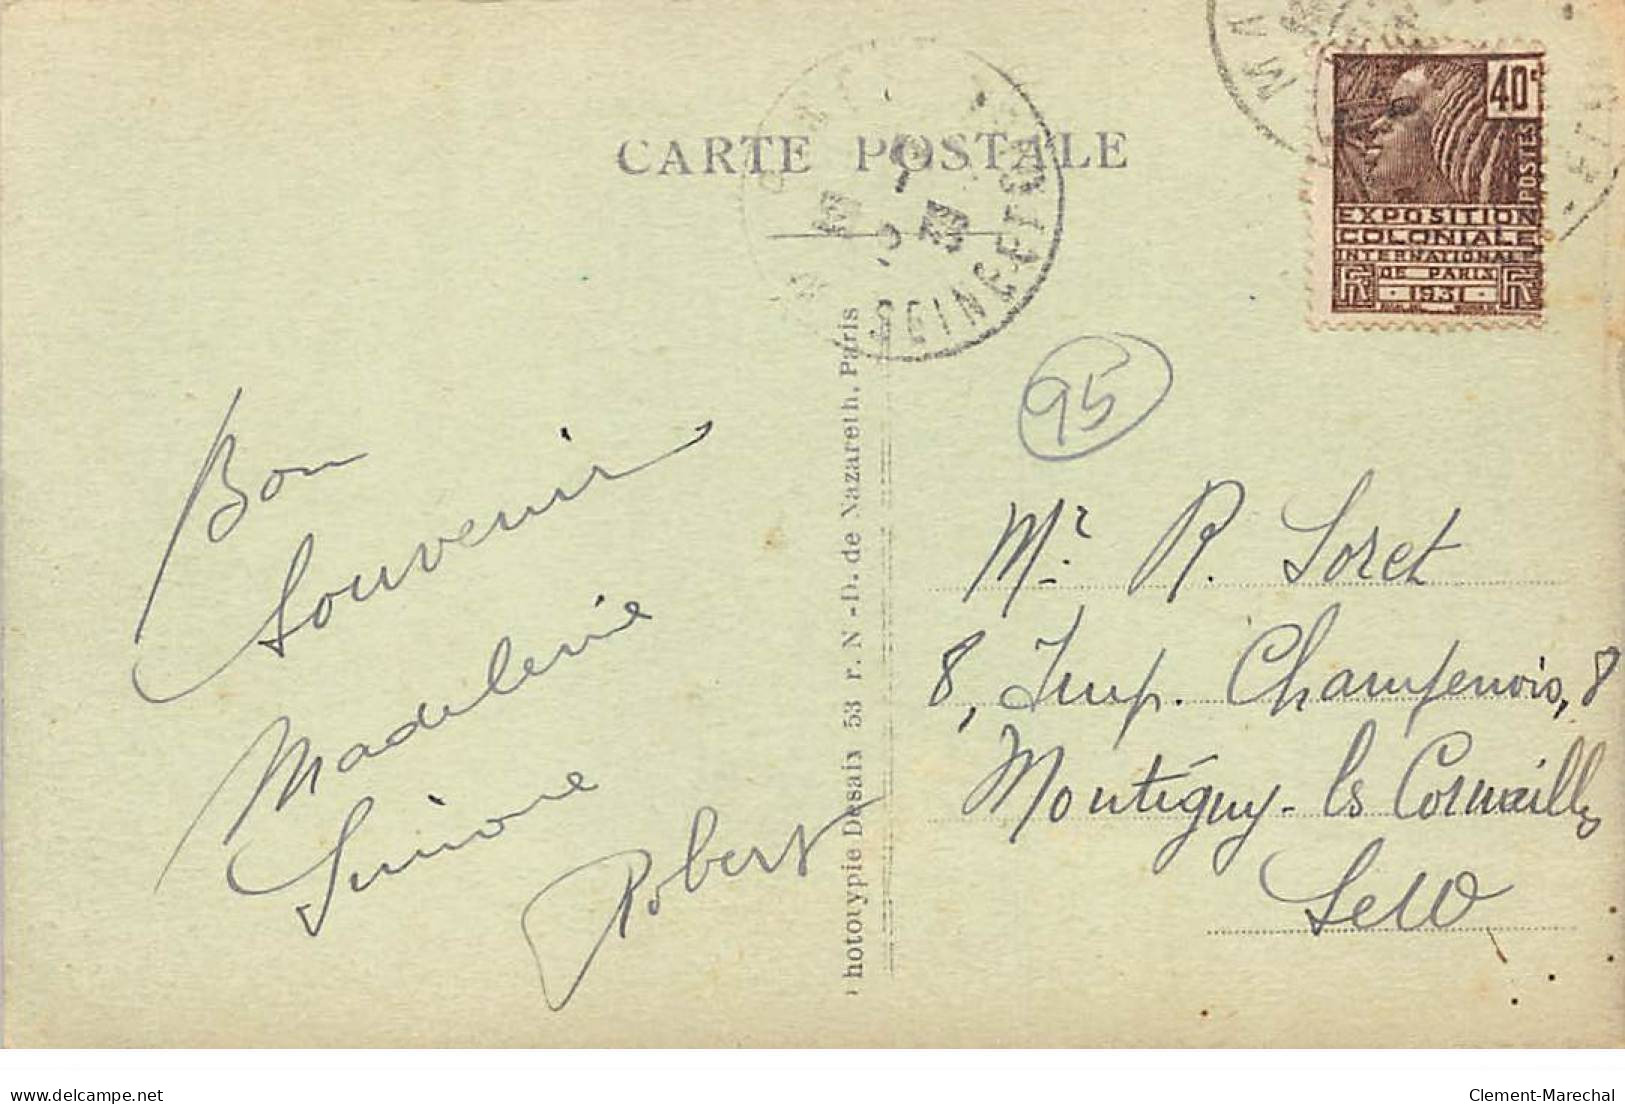 CARTE POSTALE
40c
POSTES
EXPOSITION
COLONIALE
INTERNATIONALE
DE PARIS
1931
SEINE ET OISE
95
Bon
Souvenir
Madeleine
Simone
Robert
Phototypie Desaix 53 r. N.-D. de Nazareth, Paris
Mr. R. Soret
8, Imp. Champenois, 8
Montigny-ls Cormeilles
S et O
delcampe.net
Clement-Marechal